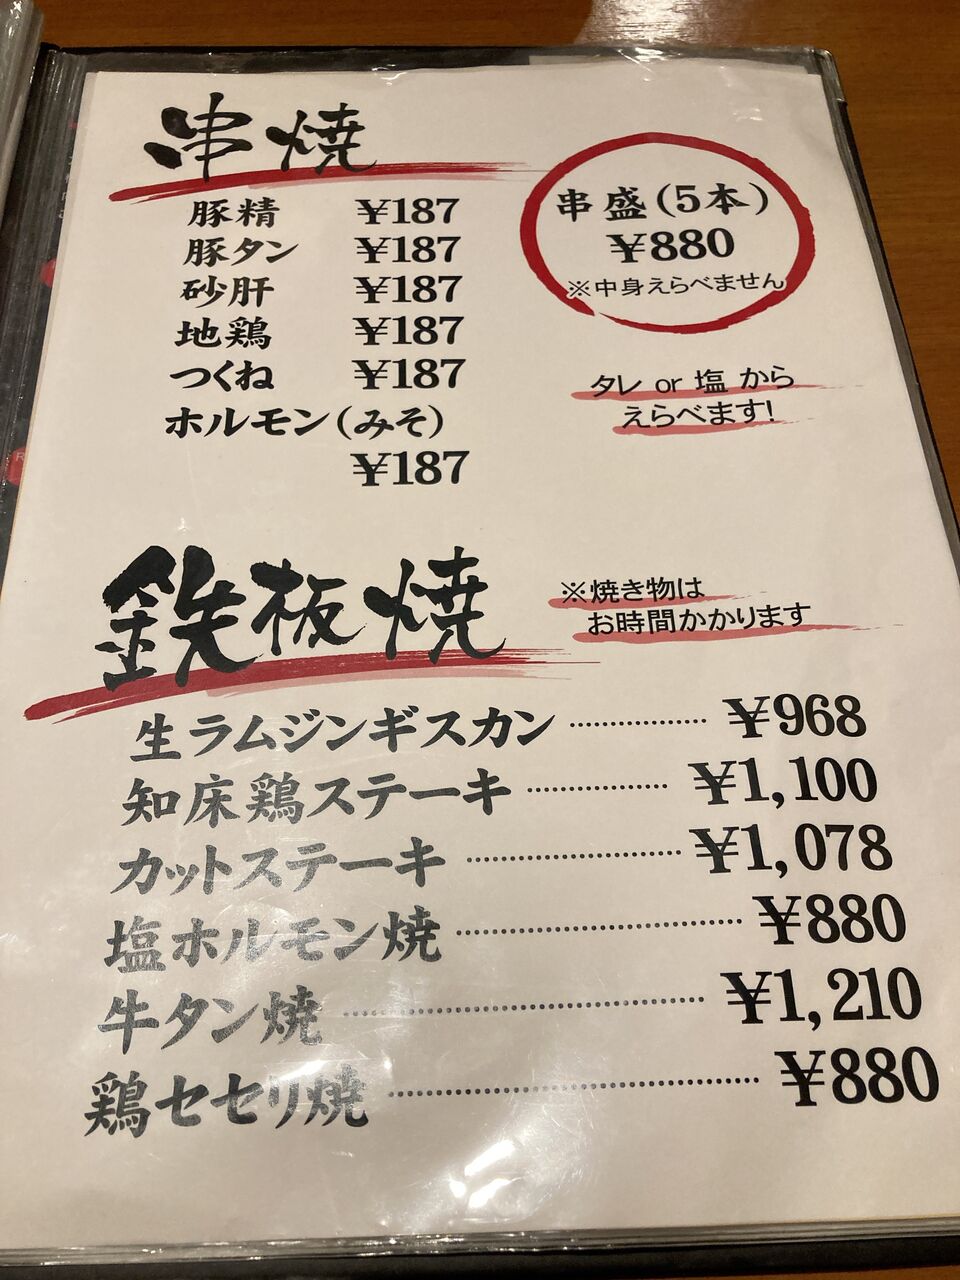 串焼
豚精 ¥187
豚タン ¥187
砂肝 ¥187
地鶏 ¥187
つくね ¥187
ホルモン(みそ)
¥187
串盛(5本)
¥880
※中身えらべません
タレ or 塩 から
えらべます!
鉄板焼
※焼き物は
お時間かかります
生ラムジンギスカン ¥968
知床鶏ステーキ ¥1,100
カットステーキ ¥1,078
塩ホルモン焼 ¥880
牛タン焼 ¥1,210
鶏セセリ焼 ¥880